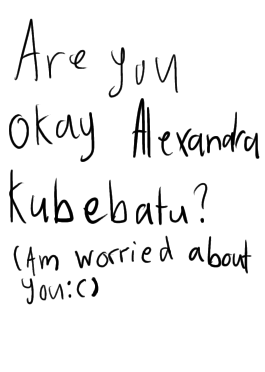 Are you
okay Alexandra
Kubebatu?
(Am worried about
you:C)